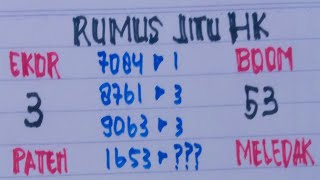 RUMUS JITU HK
EKOR 7084 ▸ 1 BOOM
3 8761 ▸ 3 53
9063 ▸ 3
PATEH 1653 ▸ ??? MELEDAK